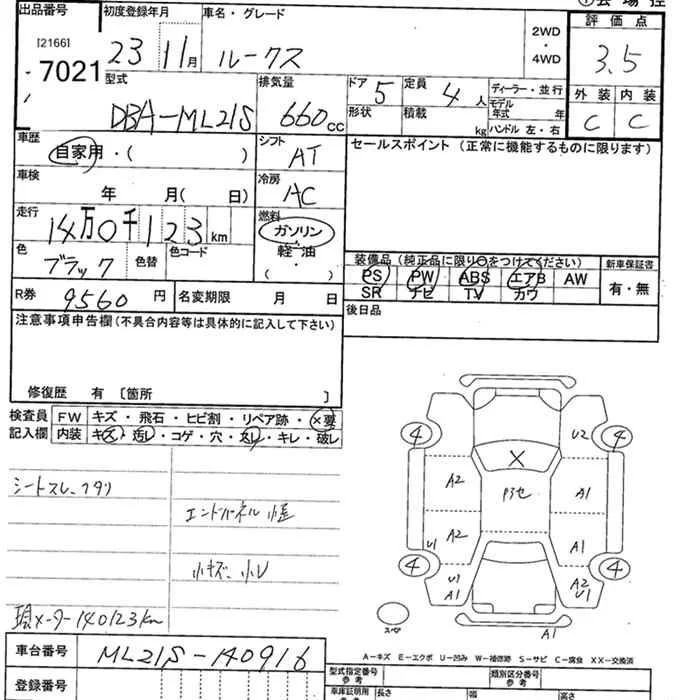 出品番号 初度登録年月 車名・グレード 評価点
[21661]
7021
23 11月 ルークス 2WD・4WD 3.5
型式 排気量 ドア 5 定員 4人 ディーラー・並行
DBA-ML21S 660cc 形状 積載 kg モデル年式 年
ハンドル 左・右
外装 内装
C C
車歴 シフト セールスポイント(正常に機能するものに限ります)
自家用・( ) AT
車検 冷房
年 月( 日) AC
走行 燃料
14万0千123km ガソリン・軽油・( )
色 色替 色コード
ブラック
装備品(純正品に限り○をつけてください) 新車保証書
PS PW ABS エアB AW 有・無
SR ナビ TV カワ
R券 9560円 名変期限 月 日 後日品
注意事項申告欄(不具合内容等は具体的に記入して下さい)
修復歴 有 〔箇所 〕
検査員記入欄 FW キズ・飛石・ヒビ割・リペア跡・×要
内装 キズ・汚レ・コゲ・穴・スレ・キレ・破レ
シートスレ、
エンドパネル
小キズ、小U
現メーター140123km
U2
4 4
X
A2 P3セ A1
A2 A1
U1
4 4
U1 A1
A2 U1
スペア
A1
A-キズ E-エクボ U-凹み W-補修跡 S-サビ C-腐食 XX-交換済
車台番号 ML21S-140916
登録番号
型式指定番号 参考 類別区分番号 参考
車庫証明用 参考 長さ 幅 高さ